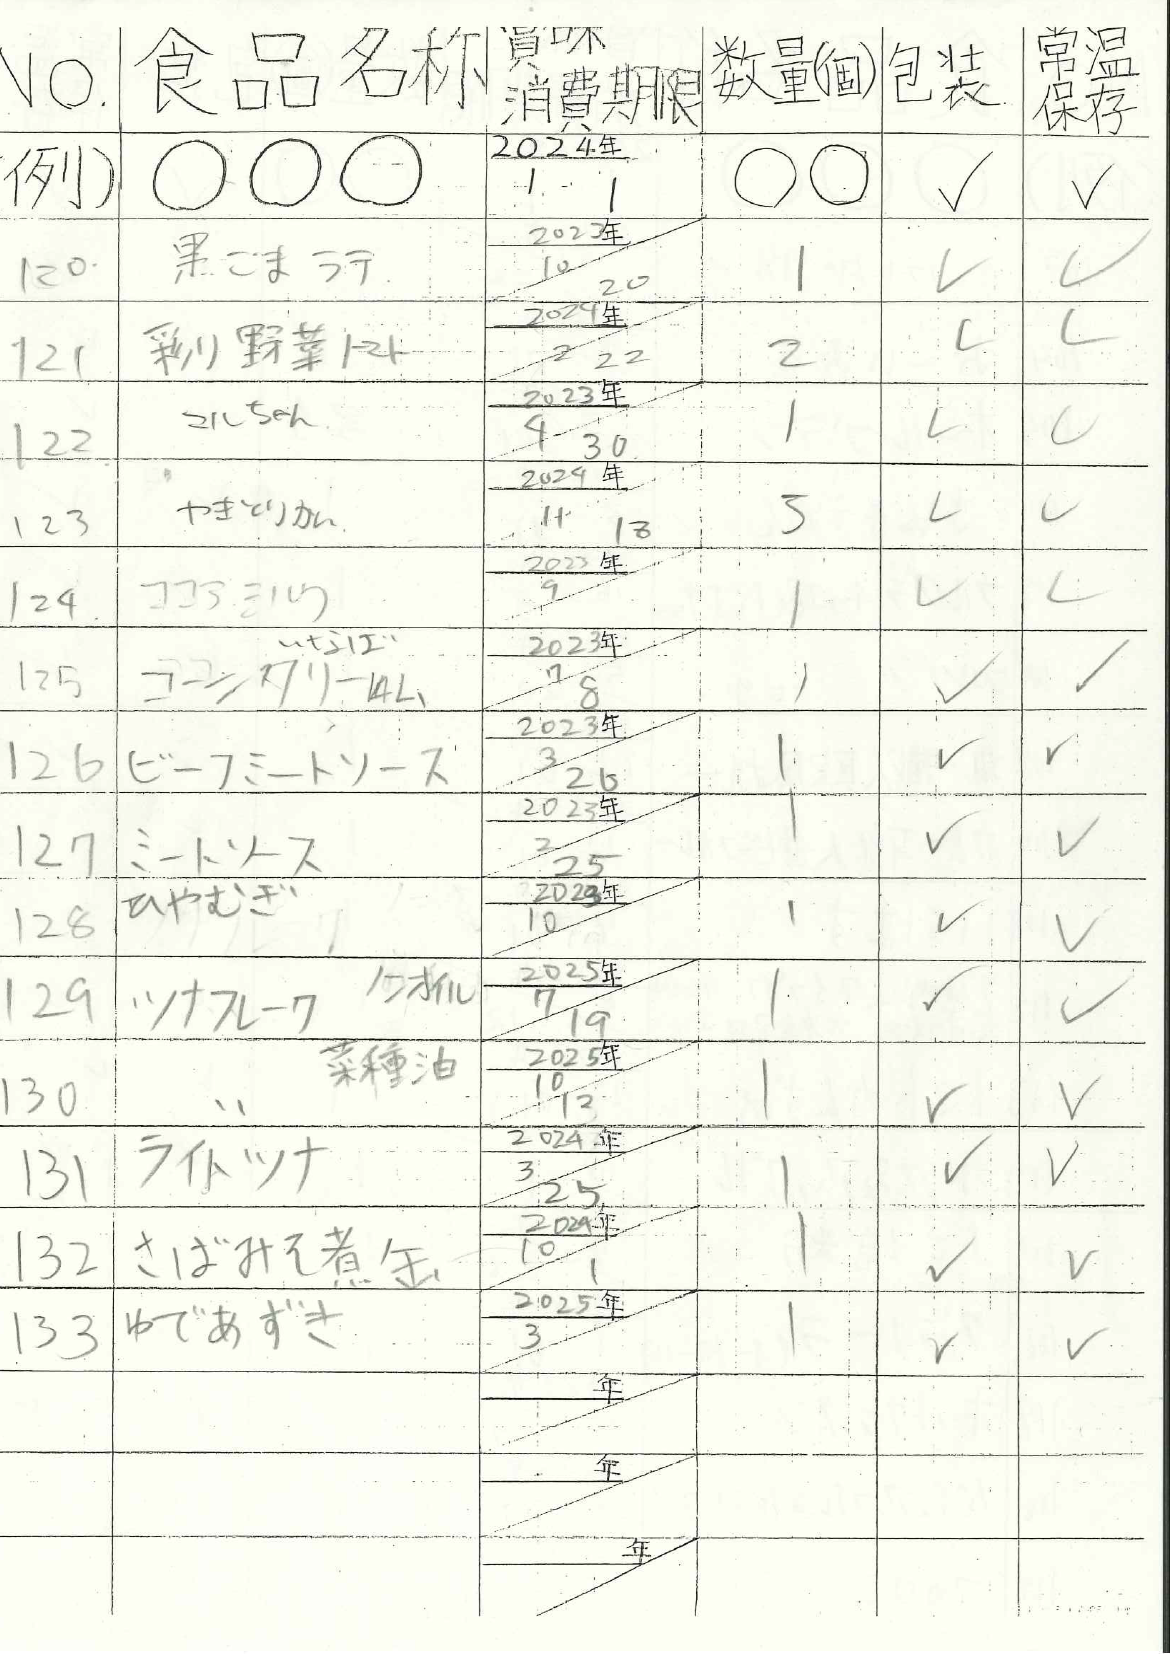 No. 食品名称 賞味消費期限 数量(個) 包装 常温保存
例) 〇〇〇 2024年 1 1 〇〇 ✓ ✓
120 黒ごまラテ 2023年 10 20 1 ✓ ✓
121 彩り野菜トマト 2024年 2 22 2 ✓ ✓
122 コルちゃん 2023年 4 30 1 ✓ ✓
123 やきとりかん 2024年 11 18 5 ✓ ✓
124 ココアミルク 2023年 9 1 ✓ ✓
125 2023年 7 8 1 ✓ ✓
126 ビーフミートソース 2023年 3 26 1 ✓ ✓
127 ミートソース 2023年 2 25 1 ✓ ✓
128 ひやむぎ 2023年 10 1 ✓ ✓
129 ツナフレーク ノンオイル 2025年 7 19 1 ✓ ✓
130 〃 菜種油 2025年 10 12 1 ✓ ✓
131 ライトツナ 2024年 3 25 1 ✓ ✓
132 さばみそ煮缶 2024年 10 1 1 ✓ ✓
133 ゆであずき 2025年 3 1 ✓ ✓
年
年
年